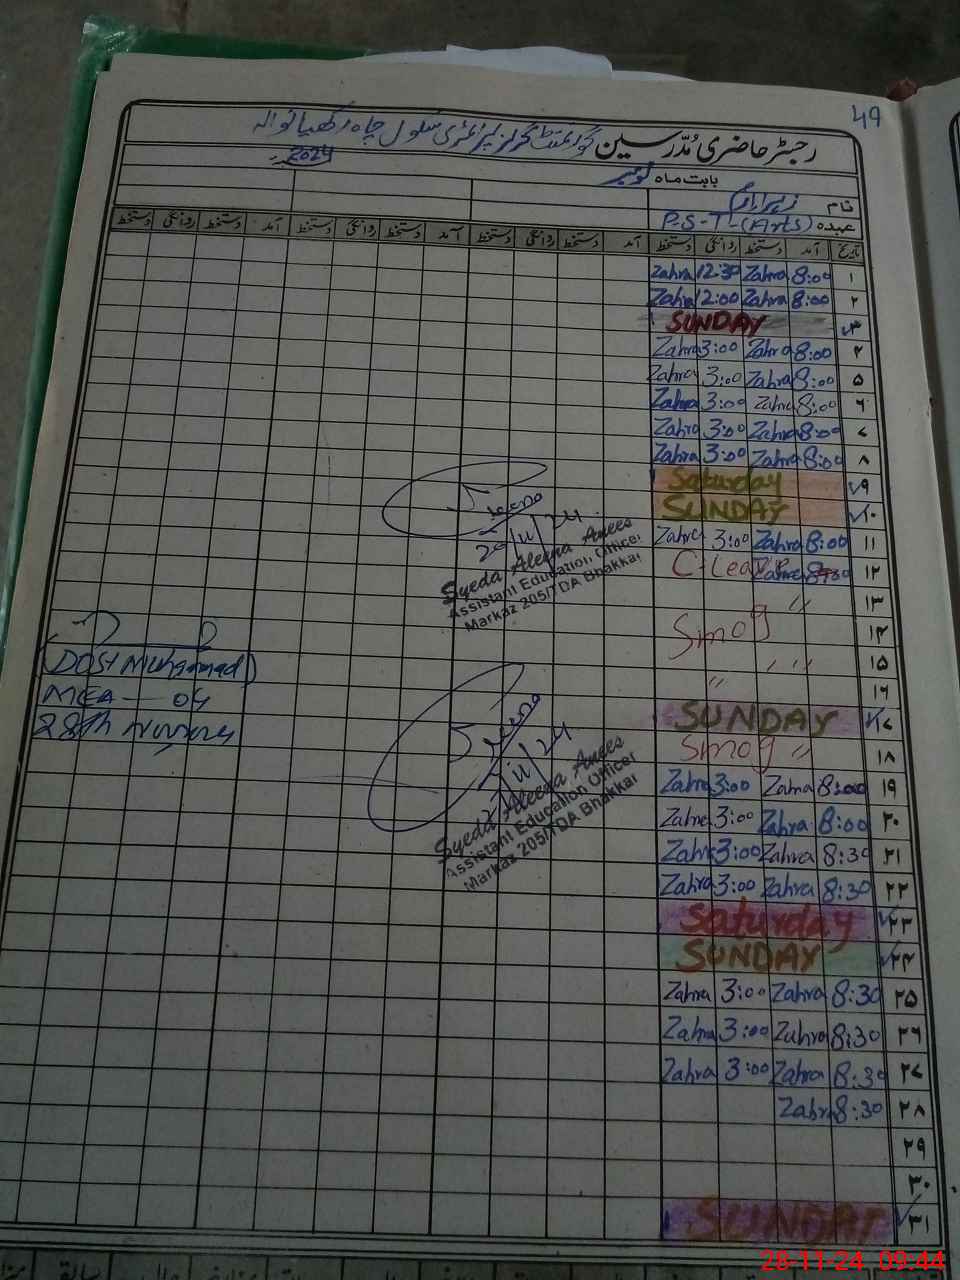 49
رجسٹر حاضری مُدرّسین گورنمنٹ گرلز پرائمری سکول چاہ رکھیانوالہ
بابت ماہ نومبر 2024
نام
عہدہ P.S.T-(Arts)
تاریخ آمد دستخط روانگی دستخط آمد دستخط روانگی دستخط آمد دستخط روانگی دستخط آمد دستخط روانگی دستخط
۱ 8:00 Zahra 12:30 Zahra
۲ 8:00 Zahra 12:00 Zahra
۳ SUNDAY
۴ 8:00 Zahra 3:00 Zahra
۵ 8:00 Zahra 3:00 Zahra
۶ 8:00 Zahra 3:00 Zahra
۷ 8:00 Zahra 3:00 Zahra
۸ 8:00 Zahra 3:00 Zahra
۹ Saturday
۱۰ SUNDAY
۱۱ 8:00 Zahra 3:00 Zahra
۱۲ C-Leave
۱۳ "
۱۴ Smog
۱۵ " "
۱۶ "
۱۷ SUNDAY
۱۸ Smog "
۱۹ 8:00 Zahra 3:00 Zahra
۲۰ 8:00 Zahra 3:00 Zahra
۲۱ 8:30 Zahra 3:00 Zahra
۲۲ 8:30 Zahra 3:00 Zahra
۲۳ Saturday
۲۴ SUNDAY
۲۵ 8:30 Zahra 3:00 Zahra
۲۶ 8:30 Zahra 3:00 Zahra
۲۷ 8:30 Zahra 3:00 Zahra
۲۸ 8:30 Zahra
۲۹
۳۰
۳۱ SUNDAY
Syeda Aleena Anees
Assistant Education Officer
Markaz 205/TDA Bhakkar
Syeda Aleena Anees
Assistant Education Officer
Markaz 205/TDA Bhakkar
(Dost Muhammad)
MEA - 04
28th
28-11-24 09:44